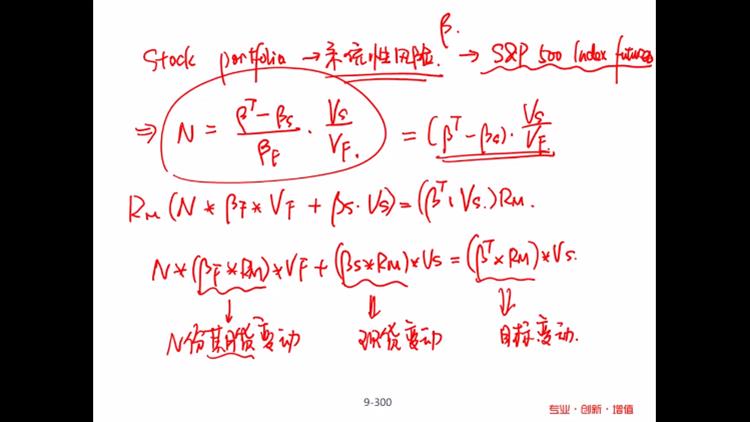 β.
Stock portfolio → 系统性风险. → S&P 500 Index futures
⇒ N = \frac{β^T - β_S}{β_F} · \frac{V_S}{V_F.} = (β^T - β_S) · \frac{V_S}{V_F}
R_M (N * β_F * V_F + β_S · V_S) = (β^T · V_S.) R_M.
N * (β_F * R_M) * V_F + (β_S * R_M) * V_S = (β^T × R_M) * V_S.
↓ ⇓ ⇓
N份期货变动 现货变动 目标变动.
9-300
专业·创新·增值